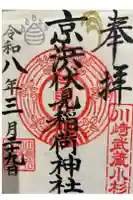 奉拝
川崎武蔵小杉
京浜伏見稲荷神社
令和八年三月二九日